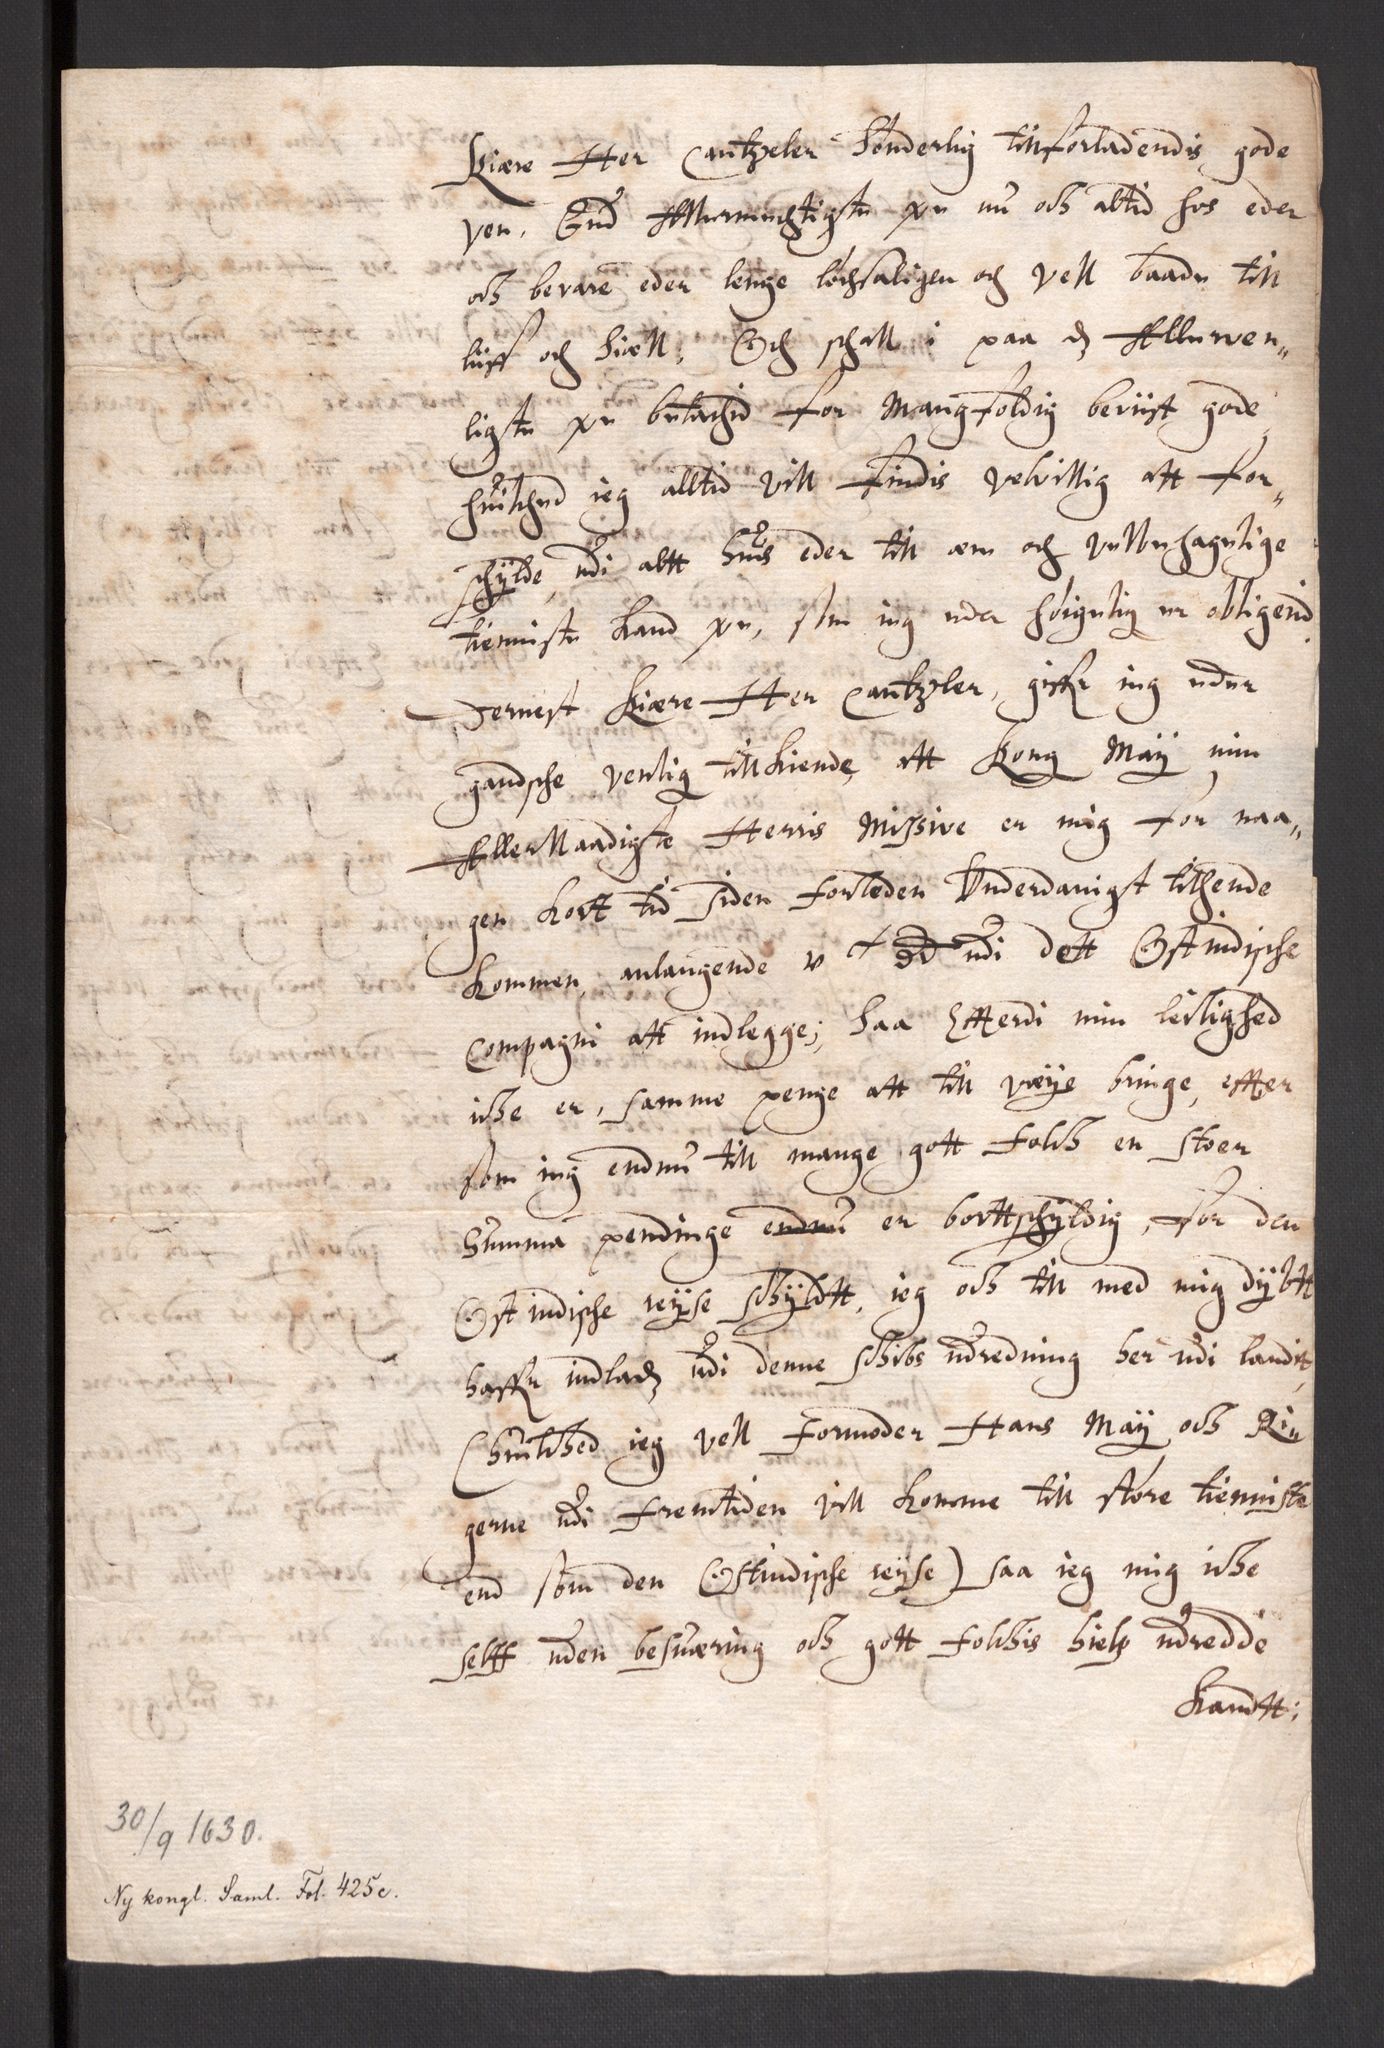 Kiære Her Cantzeler Sönderlig tillforladendis gode
ven, Gud Allermechtigste were nu och altid hos eder
och bevare eder lenge löchsaligen och vell baade till
liiff och siæll. Och schall i paa det Allerven„
ligste were betachid for mangfoldig beviist gode,
huilched ieg alltid vill findis velvillig att for„
schÿlde, udi altt huis eder till ære och velbehagelige
tienniste kand were, som ieg eder höigelig er obligerid.
Dernest Kiære Her Cantzeler, giffr ieg eder
gandsche venlig tillkiende, att Kong Maÿ min
AllerNaadigste Herris Missive er mig for naa„
gen kort tid siden forleden Underdanigst tilhende
kommen, anlangende udi dett Ostindische
Compagni att indlegge; Saa Efterdi min leilighed
iche er, samme penge att till væÿe bringe, efter
som ieg endnu till mange gott folch en stoer
Summa pendinge endnu er borttschÿldig, for den
Ostindische reÿse schÿldtt, ieg och till med mig dÿbtt
haffr indladt udi denne schibs udredning her udi landit,
(huilched ieg vell formoder Hans Maÿ och Rii„
gerne udi fremtiden vill komme till störe tienniste
end som den Ostindische reÿse) saa ieg mig iche
selff uden besuæring och gott folchis hielp udredde
kandtt;
30/9 1630.
Ny kongl. Saml. Fol. 425c.